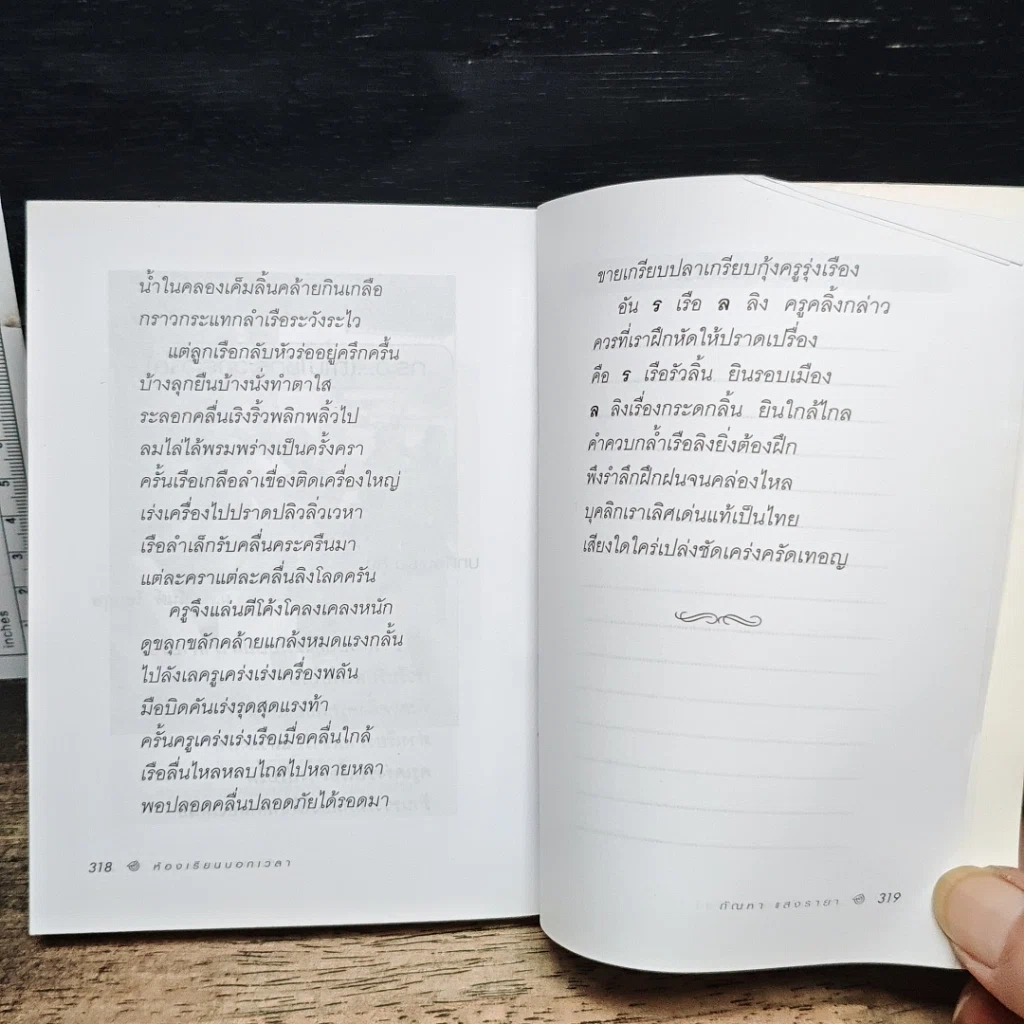 น้ำในคลองเค็มลิ้นคล้ายกินเกลือ
กราวกระแทกลำเรือระวังระไว
แต่ลูกเรือกลับหัวร่ออยู่ครึกครื้น
บ้างลุกยืนบ้างนั่งทำตาใส
ระลอกคลื่นเริงริ้วพลิกพลิ้วไป
ลมไล่ไล้พรมพร่างเป็นครั้งครา
ครั้นเรือเกลือลำเขื่องติดเครื่องใหญ่
เร่งเครื่องไปปราดปลิวลิ่วเวหา
เรือลำเล็กรับคลื่นคระครืนมา
แต่ละคราแต่ละคลื่นลิงโลดครัน
ครูจึงแล่นตีโค้งโคลงเคลงหนัก
ดูขลุกขลักคล้ายแกล้งหมดแรงกลั้น
ไปลังเลครูเคร่งเร่งเครื่องพลัน
มือบิดคันเร่งรุดสุดแรงท้า
ครั้นครูเคร่งเร่งเรือเมื่อคลื่นใกล้
เรือลื่นไหลหลบไถลไปหลายหลา
พอปลอดคลื่นปลอดภัยได้รอดมา
318 ห้องเรียนนอกเวลา
ขายเกรียบปลาเกรียบกุ้งครูรุ่งเรือง
อัน ร เรือ ล ลิง ครูคลิ้งกล่าว
ควรที่เราฝึกหัดให้ปราดเปรื่อง
คือ ร เรือรัวลิ้น ยินรอบเมือง
ล ลิงเรื่องกระดกลิ้น ยินใกล้ไกล
คำควบกล้ำเรือลิงยิ่งต้องฝึก
พึงรำลึกฝึกฝนจนคล่องไหล
บุคลิกเราเลิศเด่นแท้เป็นไทย
เสียงใดใคร่เปล่งชัดเคร่งครัดเทอญ
กัณหา แสงรายา 319
inches
5
4
3
2